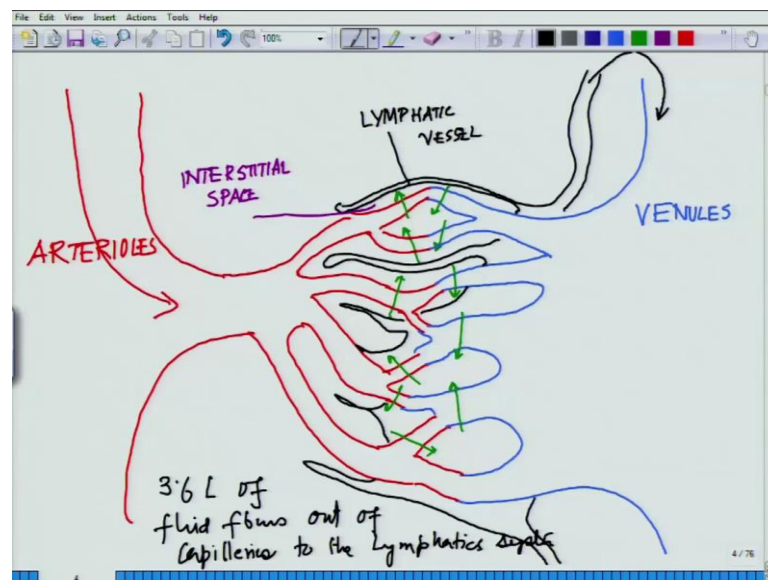 File Edit View Insert Actions Tools Help
100%
B I
LYMPHATIC
VESSEL
INTERSTITIAL
SPACE
ARTERIOLES
VENULES
3.6 L of
fluid flows out of
Capilleries to the Lymphatics
4/76